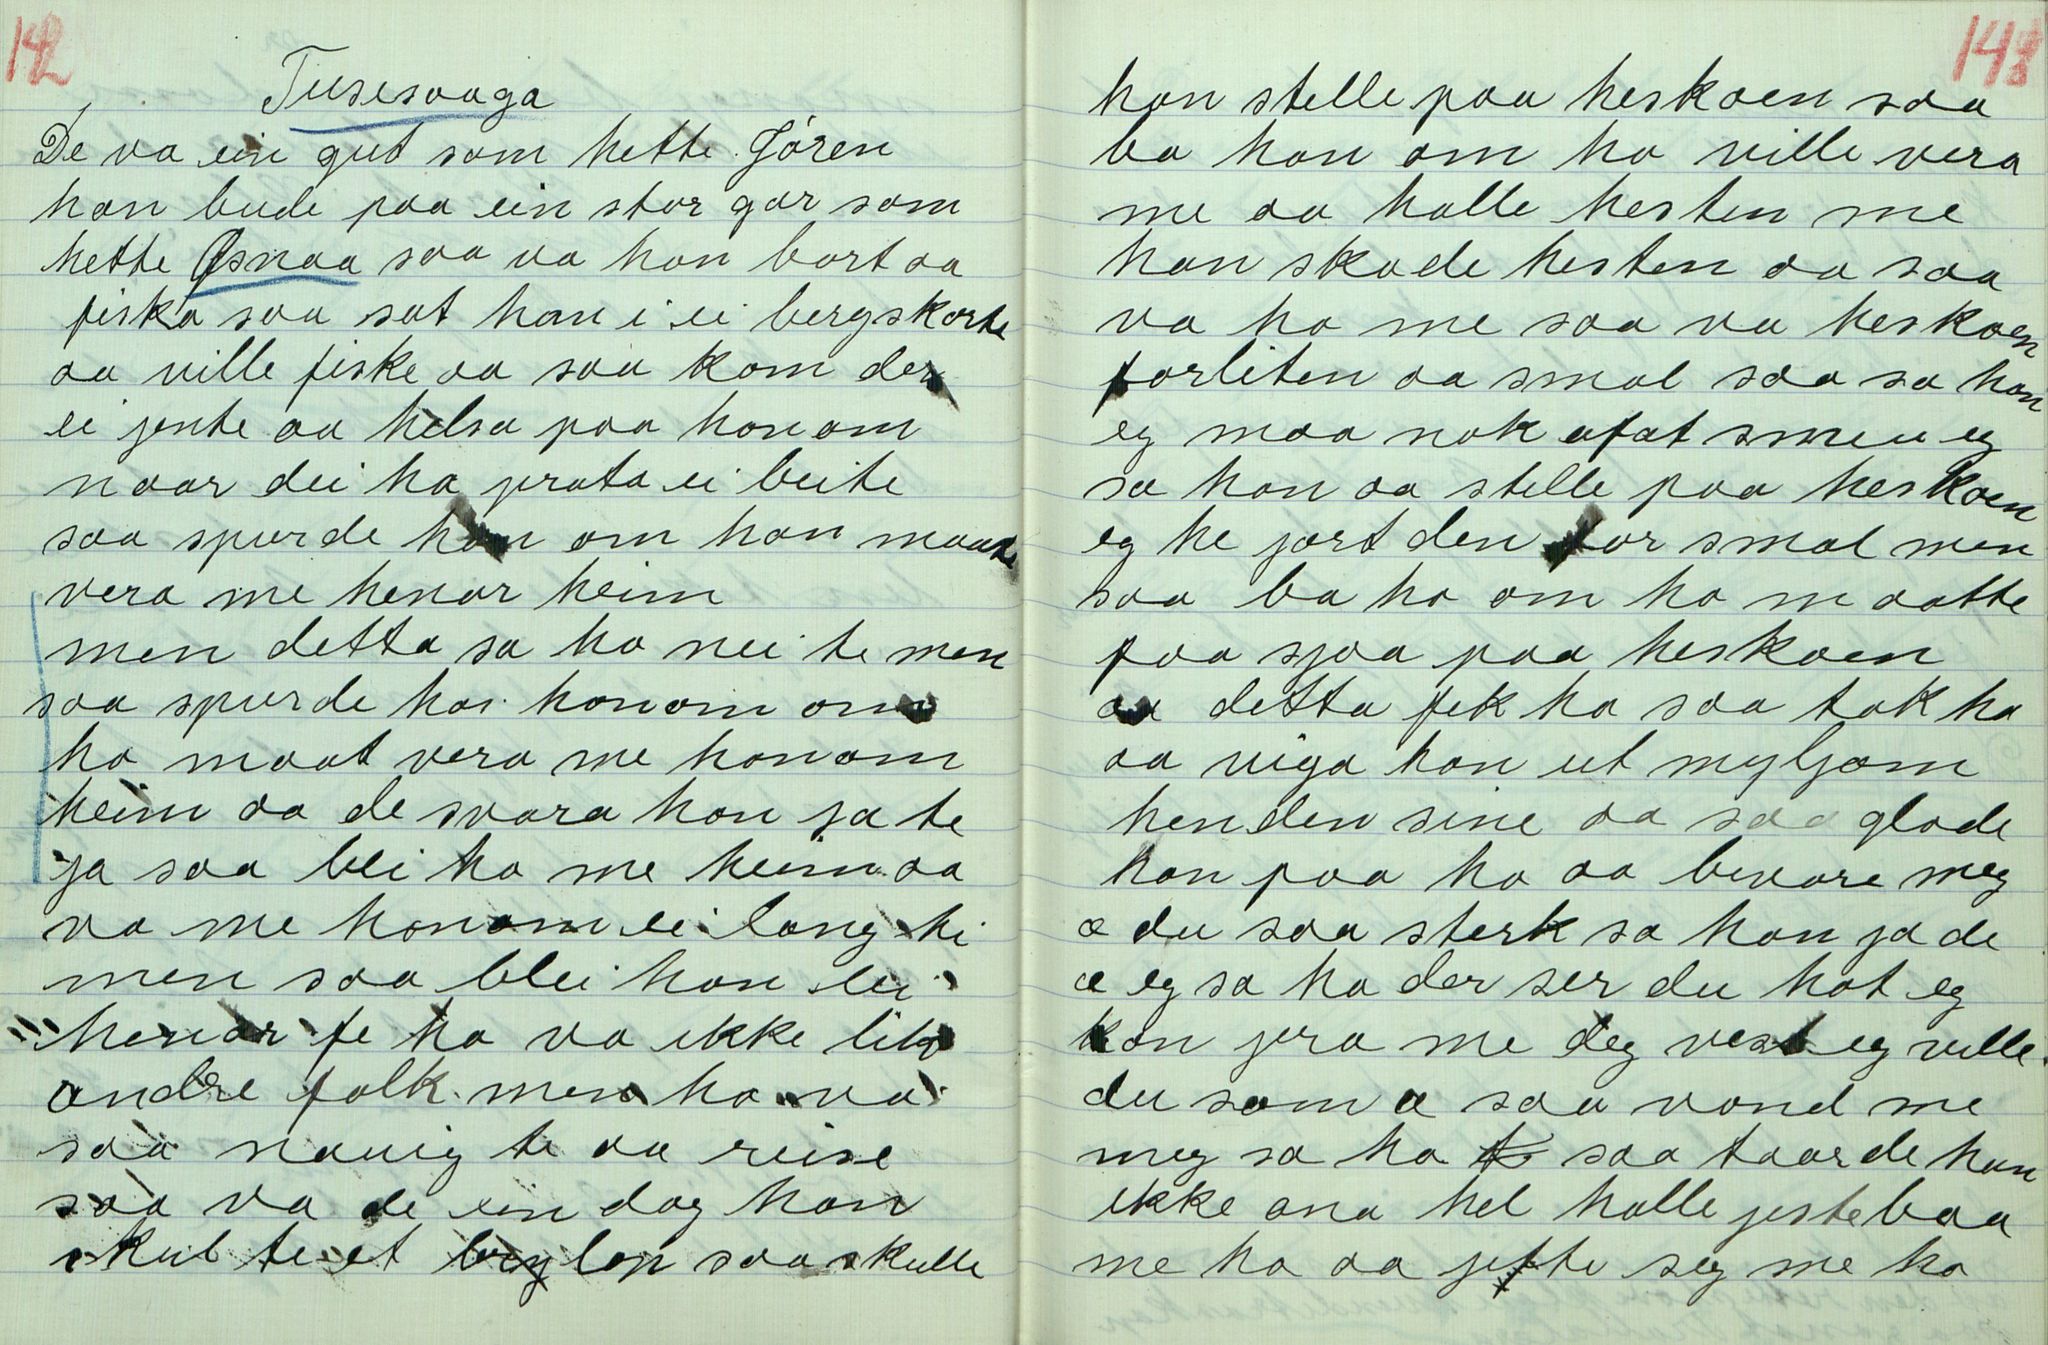 142
Tusesaaga
De va ein gut som hette Jören
han bude paa ein stor gar som
hette Osnaa saa va han bort aa
fiska saa sat han i ei bergskorte
aa ville fiske aa saa kom der
ei jente aa helsa paa honom
naar dei ha prata ei beite
saa spurde han om han maate
vera me henar heim
men detta sa ho nei te men
saa spurde ho honom om
ho maat vera me honom
heim aa de svara han ja te
ja saa blei ho me heim aa
va me honom ei lang ti
men saa blei han lei
henar fe ho va ikke lik
andre folk men ho va
saa nauig te aa reise
saa va de ein dag han
skul te et brylop saa skulle
143
han stelle paa heskoen saa
ba han om ho ville vera
me aa halle hesten me
han skode hesten aa saa
va ho me saa va heskoen
forliten aa smal saa sa han
eg maa nok afat smeu eg
sa han aa stelle paa heskoen
eg he jort den for smal men
saa ba ho om ho maatte
faa sjaa paa heskoen
aa detta fek ho saa tok ho
aa viga han ut myljom
henden sine aa saa glode
han paa ho aa bevare meg
æ du saa sterk sa han ja de
æ eg sa ho der ser du hot eg
kan jera me deg vest eg ville
du som æ saa vond me
meg sa ho saa taarde han
ikke ana hel halle jestebaa
me ho aa jifte seg me ho